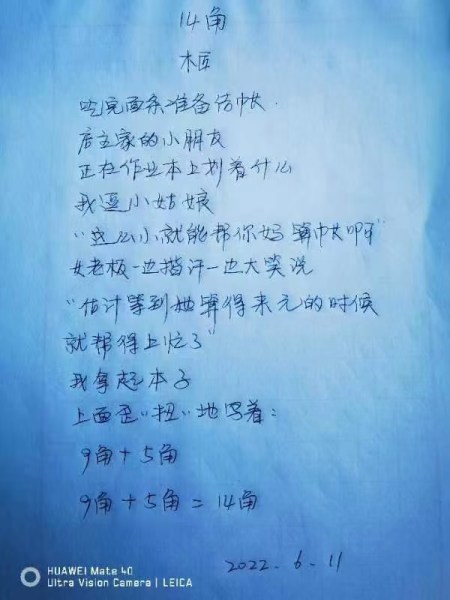 14角
木匠
吃完面条准备结帐.
店主家的小朋友
正在作业本上划着什么
我逗小姑娘
"这么小就能帮你妈算帐啊"
女老板一边揩汗一边大笑说
"估计等到她算得来元的时候
就帮得上忙了"
我拿起本子
上面歪"扭"地写着：
9角+5角
9角+5角=14角
2022.6.11
HUAWEI Mate 40
Ultra Vision Camera | LEICA